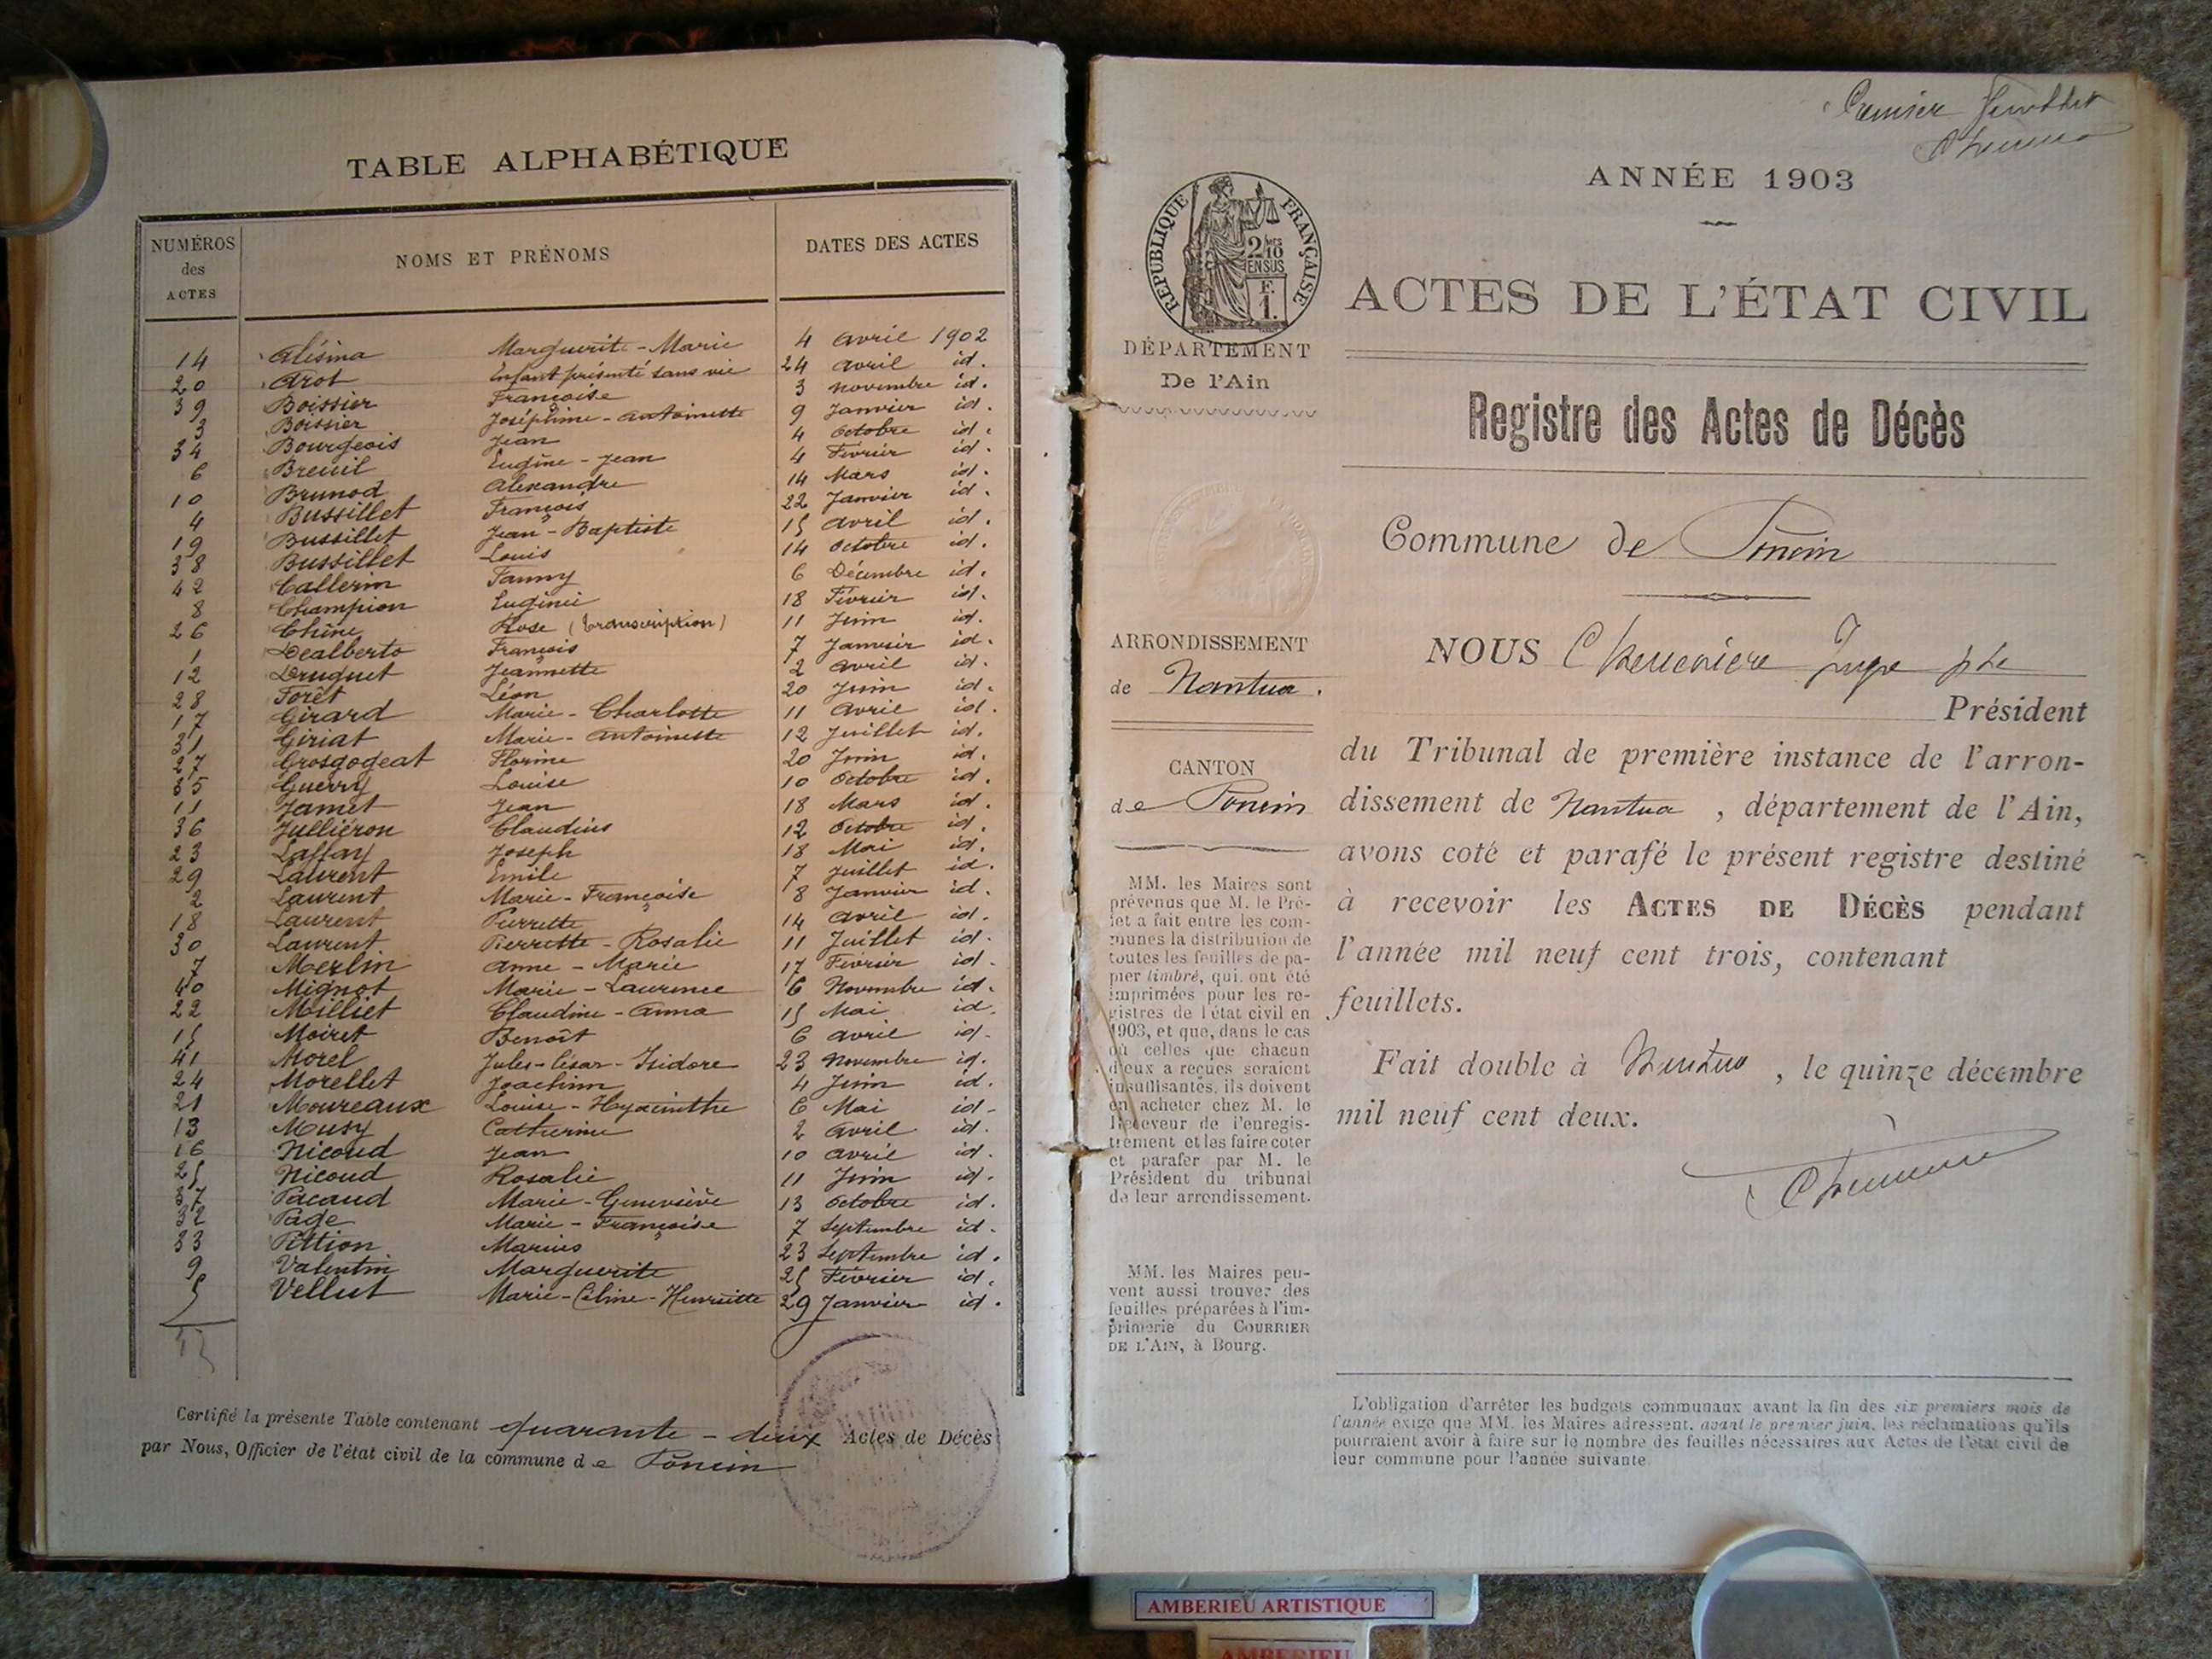 TABLE ALPHABÉTIQUE
NUMÉROS des ACTES
NOMS ET PRÉNOMS
DATES DES ACTES
14 Alésina Marguerite-Marie 4 avril 1902
20 Arot Enfant présenté sans vie 24 avril id.
39 Boissier Françoise 3 novembre id.
3 Boissier Joséphine-Antoinette 9 Janvier id.
34 Bourgeois Jean 4 Octobre id.
6 Breuil Eugène-Jean 4 Février id.
10 Brunod Alexandre 14 Mars id.
4 Bussillet François 22 Janvier id.
19 Bussillet Jean-Baptiste 15 avril id.
38 Bussillet Louis 14 Octobre id.
42 Callerin Fanny 6 Décembre id.
8 Champion Eugénie 18 Février id.
26 Chêne Rose (transcription) 11 Juin id.
1 Dealberto François 7 Janvier id.
12 Druguet Jeannette 2 avril id.
28 Forêt Léon 20 Juin id.
17 Girard Marie-Charlotte 11 avril id.
31 Giriat Marie-Antoinette 12 Juillet id.
27 Grosgogeat Florine 20 Juin id.
35 Guerry Louise 10 Octobre id.
11 Jamet Jean 18 Mars id.
36 Julliéron Claudius 12 Octobre id.
23 Laffay Joseph 18 Mai id.
29 Laurent Emile 7 Juillet id.
2 Laurent Marie-Françoise 8 Janvier id.
18 Laurent Pierrette 14 avril id.
30 Laurent Pierrette-Rosalie 11 Juillet id.
7 Merlin Anne-Marie 17 Février id.
40 Mignot Marie-Laurence 6 Novembre id.
22 Milliet Claudine-Anna 15 Mai id.
15 Moiret Benoît 6 avril id.
41 Morel Jules-César-Isidore 23 Novembre id.
24 Morellet Joachim 4 Juin id.
21 Moureaux Louise-Hyacinthe 6 Mai id.
13 Musy Catherine 2 avril id.
16 Nicoud Jean 10 avril id.
25 Nicoud Rosalie 11 Juin id.
37 Pacaud Marie-Geneviève 13 Octobre id.
32 Page Marie-Françoise 7 Septembre id.
33 Pittion Marius 23 Septembre id.
9 Valentin Marguerite 25 Février id.
5 Vellut Marie-Céline-Henriette 29 Janvier id.
Certifié la présente Table contenant quarante-deux Actes de Décès
par Nous, Officier de l'état civil de la commune de Poncin
Premier feuillet
ANNÉE 1903
RÉPUBLIQUE FRANÇAISE
2/10 EN SUS
F. 1.
ACTES DE L'ÉTAT CIVIL
DÉPARTEMENT
De l'Ain
Registre des Actes de Décès
Commune de Poncin
ARRONDISSEMENT
de Nantua.
CANTON
de Poncin
MM. les Maires sont
prévenus que M. le Pré-
fet a fait entre les com-
munes la distribution de
toutes les feuilles de pa-
pier timbré, qui ont été
imprimées pour les re-
gistres de l'état civil en
1903, et que, dans le cas
où celles que chacun
d'eux a reçues seraient
insuffisantes, ils doivent
en acheter chez M. le
Receveur de l'enregis-
trement et les faire coter
et parafer par M. le
Président du tribunal
de leur arrondissement.
MM. les Maires peu-
vent aussi trouver des
feuilles préparées à l'im-
primerie du COURRIER
DE L'AIN, à Bourg.
NOUS Chenevière Juge pte
Président
du Tribunal de première instance de l'arron-
dissement de Nantua, département de l'Ain,
avons coté et parafé le présent registre destiné
à recevoir les ACTES DE DÉCÈS pendant
l'année mil neuf cent trois, contenant
feuillets.
Fait double à Nantua, le quinze décembre
mil neuf cent deux.
L'obligation d'arrêter les budgets communaux avant la fin des six premiers mois de
l'année exige que MM. les Maires adressent, avant le premier juin, les réclamations qu'ils
pourraient avoir à faire sur le nombre des feuilles nécessaires aux Actes de l'état civil de
leur commune pour l'année suivante
AMBERIEU ARTISTIQUE
AMBERIEU